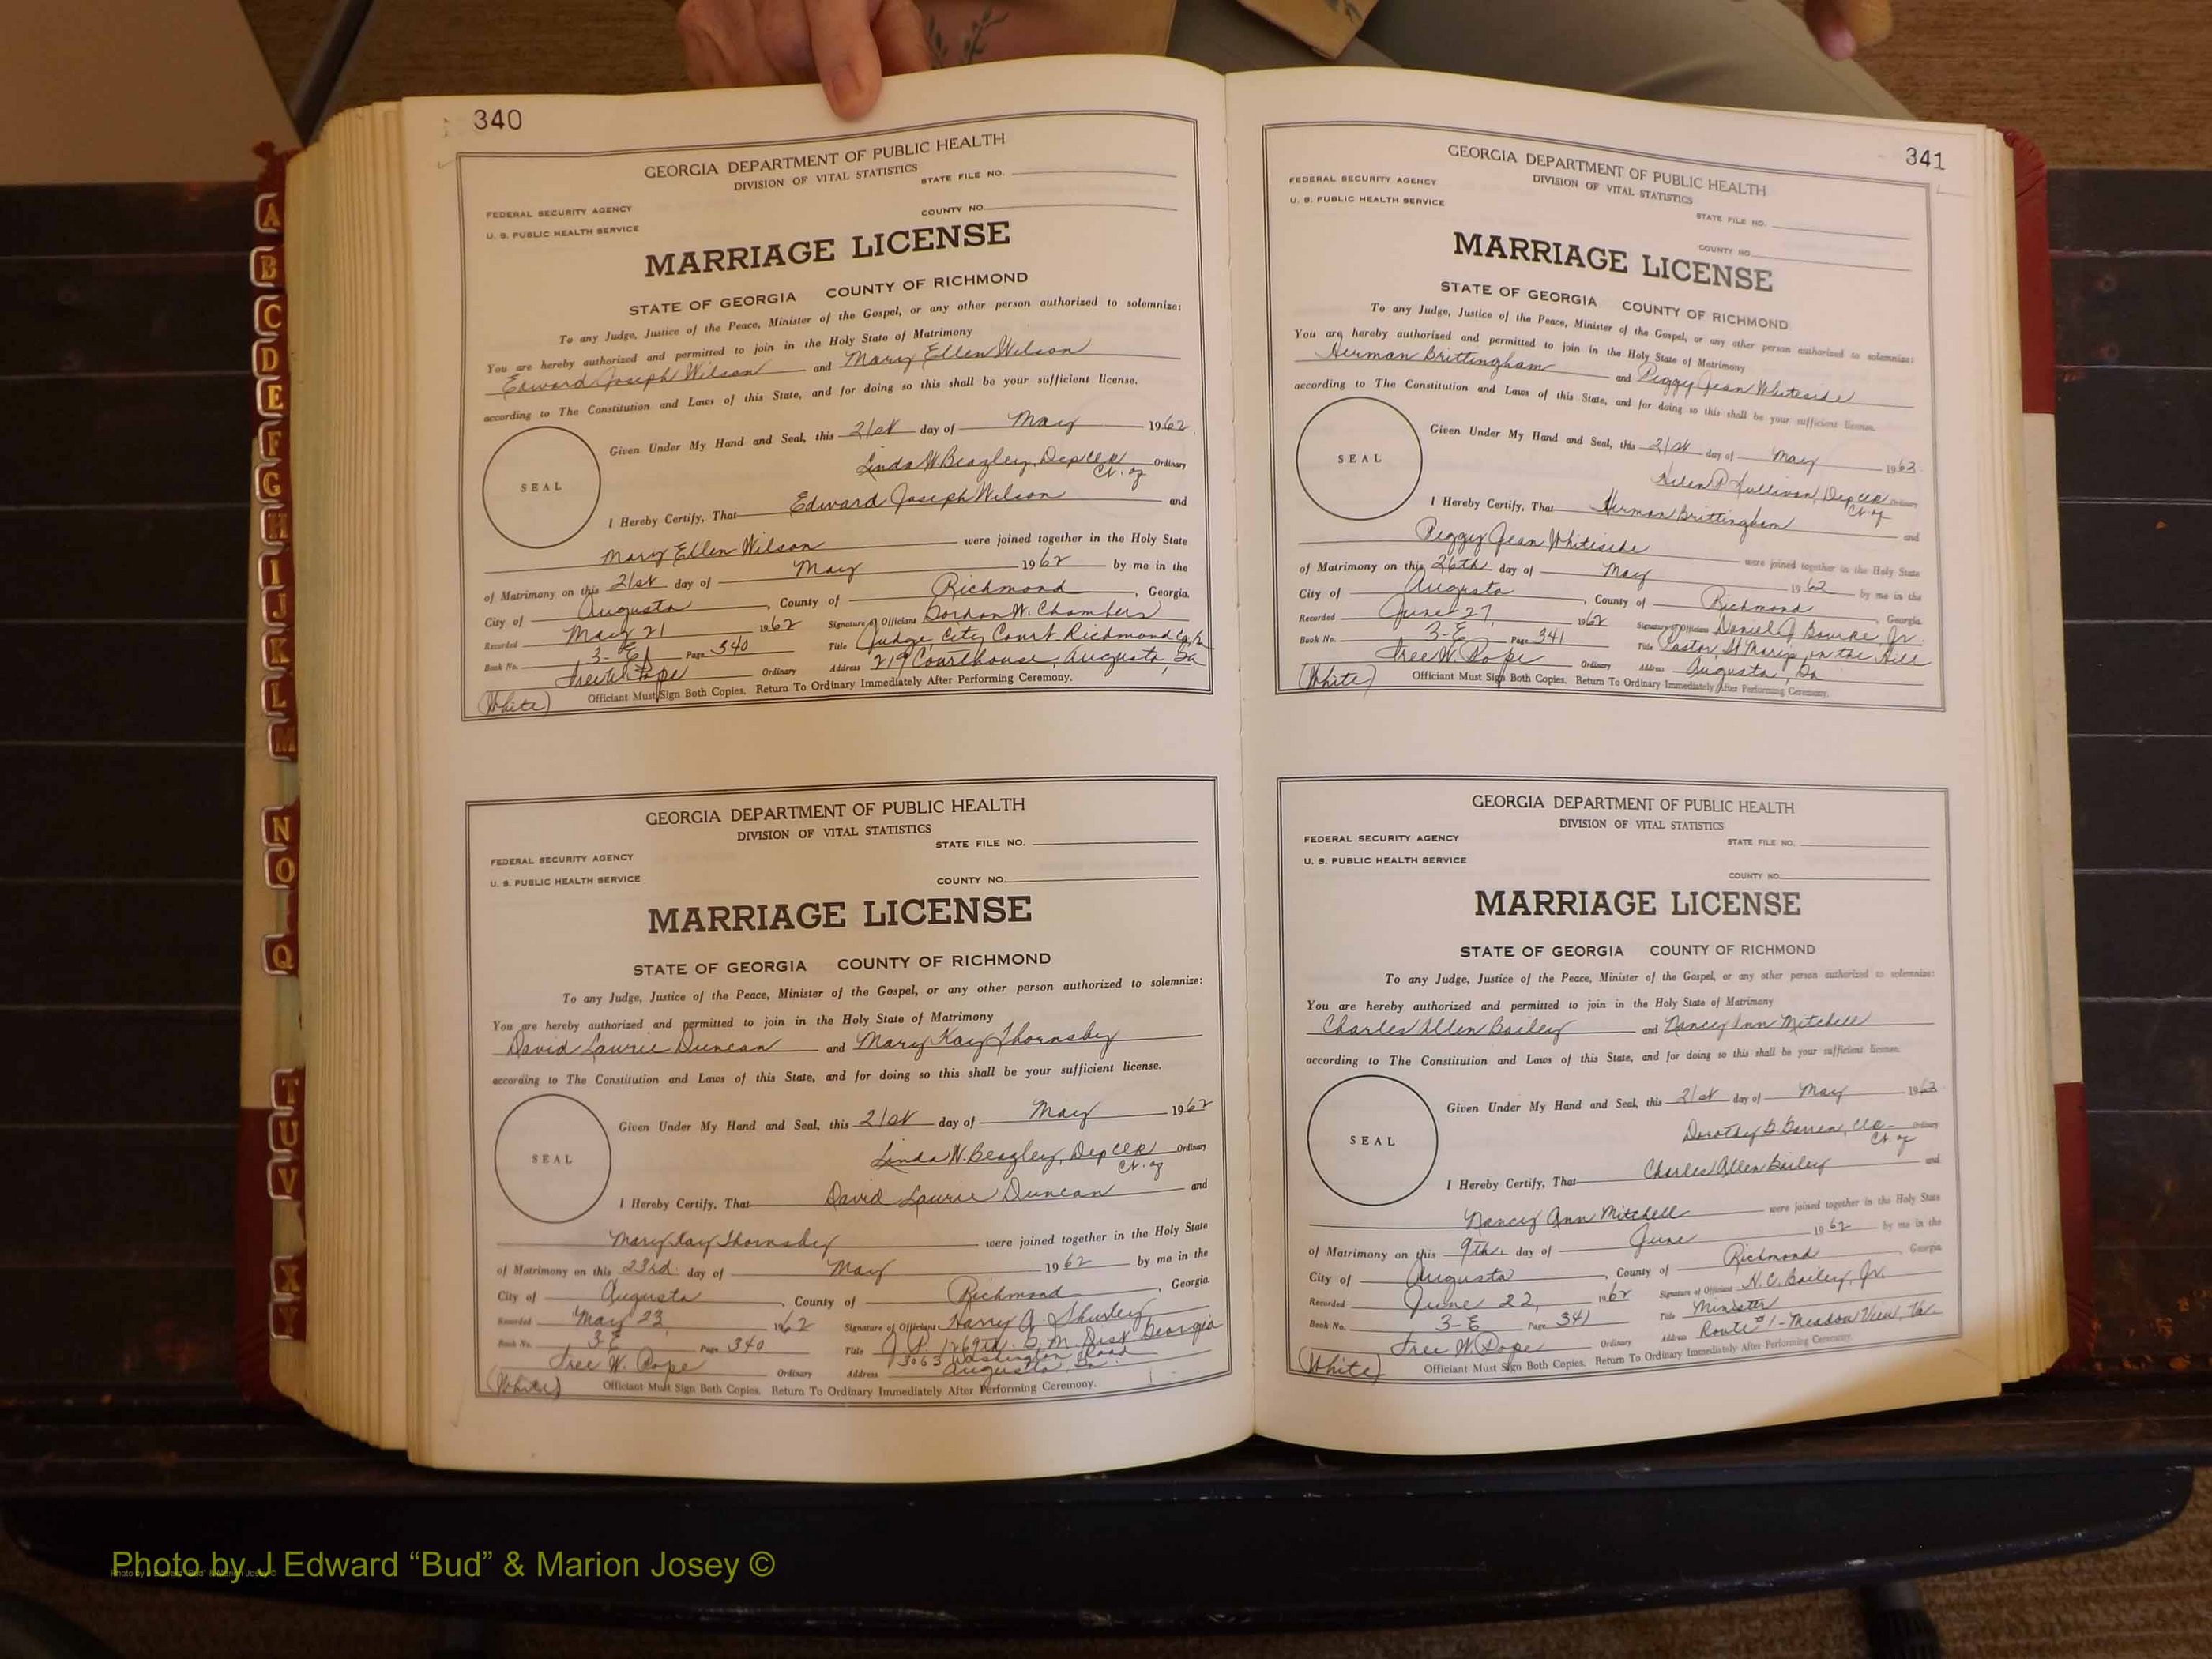 340
GEORGIA DEPARTMENT OF PUBLIC HEALTH
DIVISION OF VITAL STATISTICS
STATE FILE NO.
FEDERAL SECURITY AGENCY
COUNTY NO.
U. S. PUBLIC HEALTH SERVICE
MARRIAGE LICENSE
STATE OF GEORGIA COUNTY OF RICHMOND
To any Judge, Justice of the Peace, Minister of the Gospel, or any other person authorized to solemnize:
You are hereby authorized and permitted to join in the Holy State of Matrimony
Edward Joseph Wilson and Mary Ellen Wilson
according to The Constitution and Laws of this State, and for doing so this shall be your sufficient license.
Given Under My Hand and Seal, this 21st day of May 1962
SEAL
Linda W. Beazley, Dep Clk Ordinary
Ct. of
I Hereby Certify, That Edward Joseph Wilson and
Mary Ellen Wilson were joined together in the Holy State
of Matrimony on this 21st day of May 1962 by me in the
City of Augusta, County of Richmond, Georgia.
Recorded May 21 1962 Signature of Officiant Gordon W. Chambers
Book No. 3-E Page 340 Title Judge City Court Richmond
Tree W. Pope Ordinary Address 219 Courthouse, Augusta, Ga
(White) Officiant Must Sign Both Copies. Return To Ordinary Immediately After Performing Ceremony.
GEORGIA DEPARTMENT OF PUBLIC HEALTH
DIVISION OF VITAL STATISTICS
STATE FILE NO.
FEDERAL SECURITY AGENCY
U. S. PUBLIC HEALTH SERVICE
COUNTY NO.
MARRIAGE LICENSE
STATE OF GEORGIA COUNTY OF RICHMOND
To any Judge, Justice of the Peace, Minister of the Gospel, or any other person authorized to solemnize:
You are hereby authorized and permitted to join in the Holy State of Matrimony
David Laurie Duncan and Mary Kay Thornsby
according to The Constitution and Laws of this State, and for doing so this shall be your sufficient license.
Given Under My Hand and Seal, this 21st day of May 1962
SEAL
Linda W. Beazley, Dep Clk Ordinary
Ct. of
I Hereby Certify, That David Laurie Duncan and
Mary Kay Thornsby were joined together in the Holy State
of Matrimony on this 23rd day of May 1962 by me in the
City of Augusta, County of Richmond, Georgia.
Recorded May 23, 1962 Signature of Officiant Harry A. Shurley
Book No. 3-E Page 340 Title J. P. 1269th. G. M. Dist Georgia
3063 Washington Road
Tree W. Pope Ordinary Address Augusta, Ga.
(White) Officiant Must Sign Both Copies. Return To Ordinary Immediately After Performing Ceremony.
341
GEORGIA DEPARTMENT OF PUBLIC HEALTH
DIVISION OF VITAL STATISTICS
FEDERAL SECURITY AGENCY
U. S. PUBLIC HEALTH SERVICE
STATE FILE NO.
COUNTY NO.
MARRIAGE LICENSE
STATE OF GEORGIA COUNTY OF RICHMOND
To any Judge, Justice of the Peace, Minister of the Gospel, or any other person authorized to solemnize:
You are hereby authorized and permitted to join in the Holy State of Matrimony
Herman Brittingham and Peggy Jean Whiteside
according to The Constitution and Laws of this State, and for doing so this shall be your sufficient license.
Given Under My Hand and Seal, this 21st day of May 1962
SEAL
Helen P. Sullivan, Dep Clk Ordinary
Ct. of
I Hereby Certify, That Herman Brittingham and
Peggy Jean Whiteside were joined together in the Holy State
of Matrimony on this 26th day of May 1962 by me in the
City of Augusta, County of Richmond, Georgia
Recorded June 27, 1962 Signature of Officiant Daniel J Bourke, Jr.
Book No. 3-E Page 341 Title Pastor, St Marys on the Hill
Tree W. Pope Ordinary Address Augusta, Ga
(White) Officiant Must Sign Both Copies. Return To Ordinary Immediately After Performing Ceremony.
GEORGIA DEPARTMENT OF PUBLIC HEALTH
DIVISION OF VITAL STATISTICS
FEDERAL SECURITY AGENCY
STATE FILE NO.
U. S. PUBLIC HEALTH SERVICE
COUNTY NO.
MARRIAGE LICENSE
STATE OF GEORGIA COUNTY OF RICHMOND
To any Judge, Justice of the Peace, Minister of the Gospel, or any other person authorized to solemnize:
You are hereby authorized and permitted to join in the Holy State of Matrimony
Charles Allen Bailey and Nancy Ann Mitchell
according to The Constitution and Laws of this State, and for doing so this shall be your sufficient license.
Given Under My Hand and Seal, this 21st day of May 1962
SEAL
Dorothy Clk Ordinary
Ct. of
I Hereby Certify, That Charles Allen Bailey and
Nancy Ann Mitchell were joined together in the Holy State
of Matrimony on this 9th day of June 1962 by me in the
City of Augusta, County of Richmond, Georgia
Recorded June 22, 1962 Signature of Officiant N. C. Bailey, Jr.
Book No. 3-E Page 341 Title Minister
Tree W. Pope Ordinary Address Route #1 - Meadow View, Va.
(White) Officiant Must Sign Both Copies. Return To Ordinary Immediately After Performing Ceremony.
A
B
C
D
E
F
G
H
I
J
K
L
M
N
O
Q
T
U
V
X
Y
Photo by J Edward “Bud” & Marion Josey ©
Photo by J Edward “Bud” & Marion Josey ©